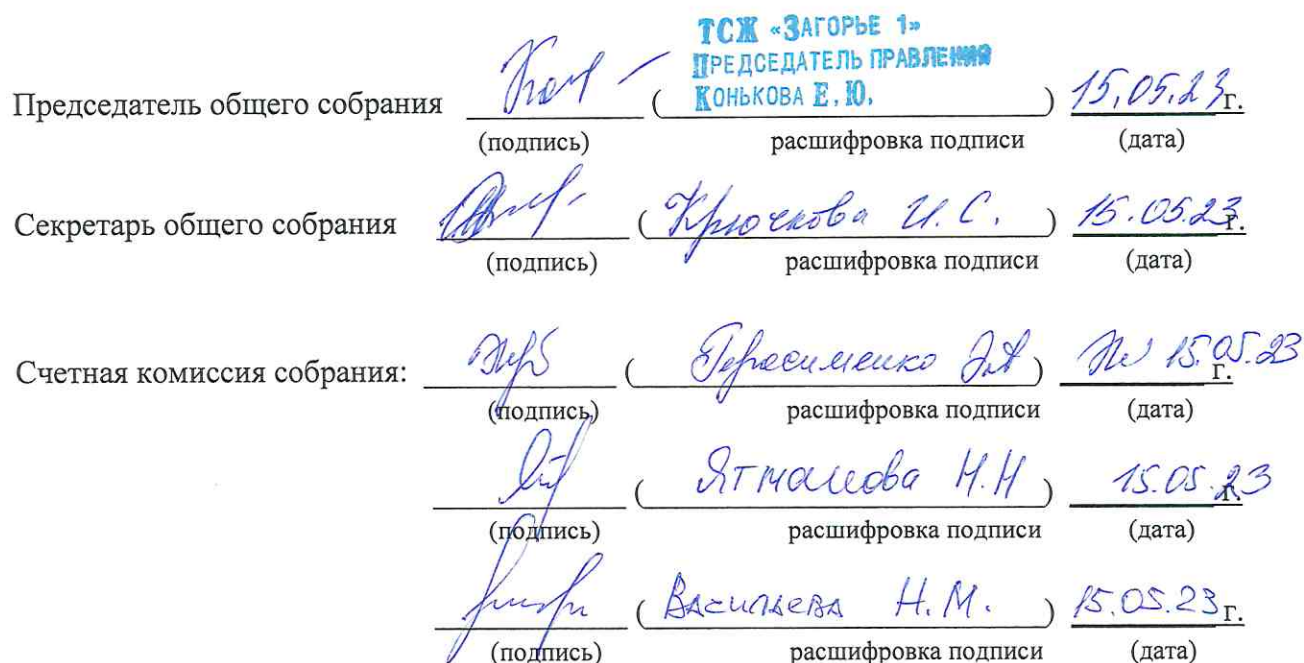 ТСЖ «ЗАГОРЬЕ 1»
ПРЕДСЕДАТЕЛЬ ПРАВЛЕНИЯ
Председатель общего собрания ( КОНЬКОВА Е.Ю. ) 15.05.23 г.
(подпись) расшифровка подписи (дата)
Секретарь общего собрания ( Крючкова И.С. ) 15.05.23 г.
(подпись) расшифровка подписи (дата)
Счетная комиссия собрания: ( Герасименко ) 15.05.23 г.
(подпись) расшифровка подписи (дата)
( Ятманова Н.Н ) 15.05.23 г.
(подпись) расшифровка подписи (дата)
( Васильева Н.М. ) 15.05.23 г.
(подпись) расшифровка подписи (дата)